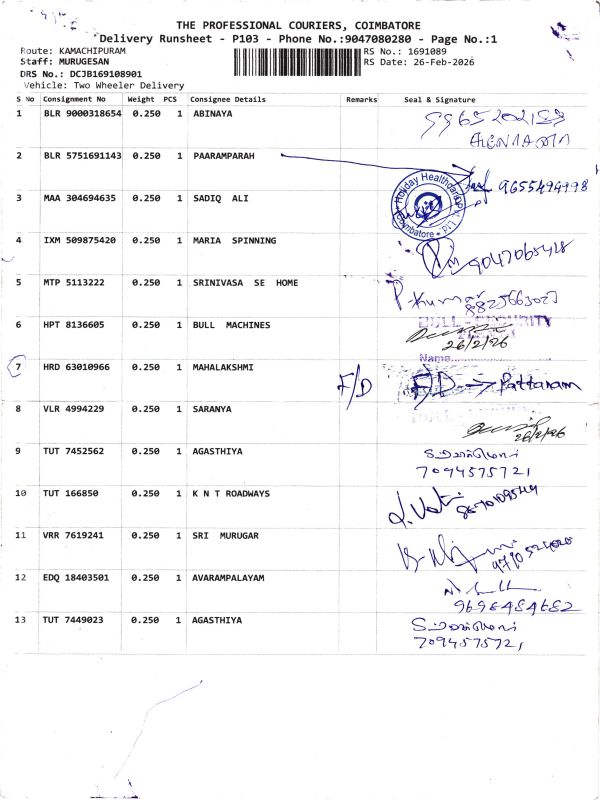 THE PROFESSIONAL COURIERS, COIMBATORE
Delivery Runsheet - P103 - Phone No.:9047080280 - Page No.:1
Route: KAMACHIPURAM RS No.: 1691089
Staff: MURUGESAN RS Date: 26-Feb-2026
DRS No.: DCJB169108901
Vehicle: Two Wheeler Delivery
S No Consignment No Weight PCS Consignee Details Remarks Seal & Signature
1 BLR 9000318654 0.250 1 ABINAYA
2 BLR 5751691143 0.250 1 PAARAMPARAH 9655494998
Holiday Healthdan
Coimbatore
3 MAA 304694635 0.250 1 SADIQ ALI
4 IXM 509875420 0.250 1 MARIA SPINNING 9047065428
5 MTP 5113222 0.250 1 SRINIVASA SE HOME P. Kumar
8825663027
6 HPT 8136605 0.250 1 BULL MACHINES BULL - SECURITY
26/2/26
Name
7 HRD 63010966 0.250 1 MAHALAKSHMI F/D F/D → Pattanam
8 VLR 4994229 0.250 1 SARANYA
26/2/26
9 TUT 7452562 0.250 1 AGASTHIYA
7094575721
10 TUT 166850 0.250 1 K N T ROADWAYS
11 VRR 7619241 0.250 1 SRI MURUGAR
12 EDQ 18403501 0.250 1 AVARAMPALAYAM
9698484682
13 TUT 7449023 0.250 1 AGASTHIYA
7094575721